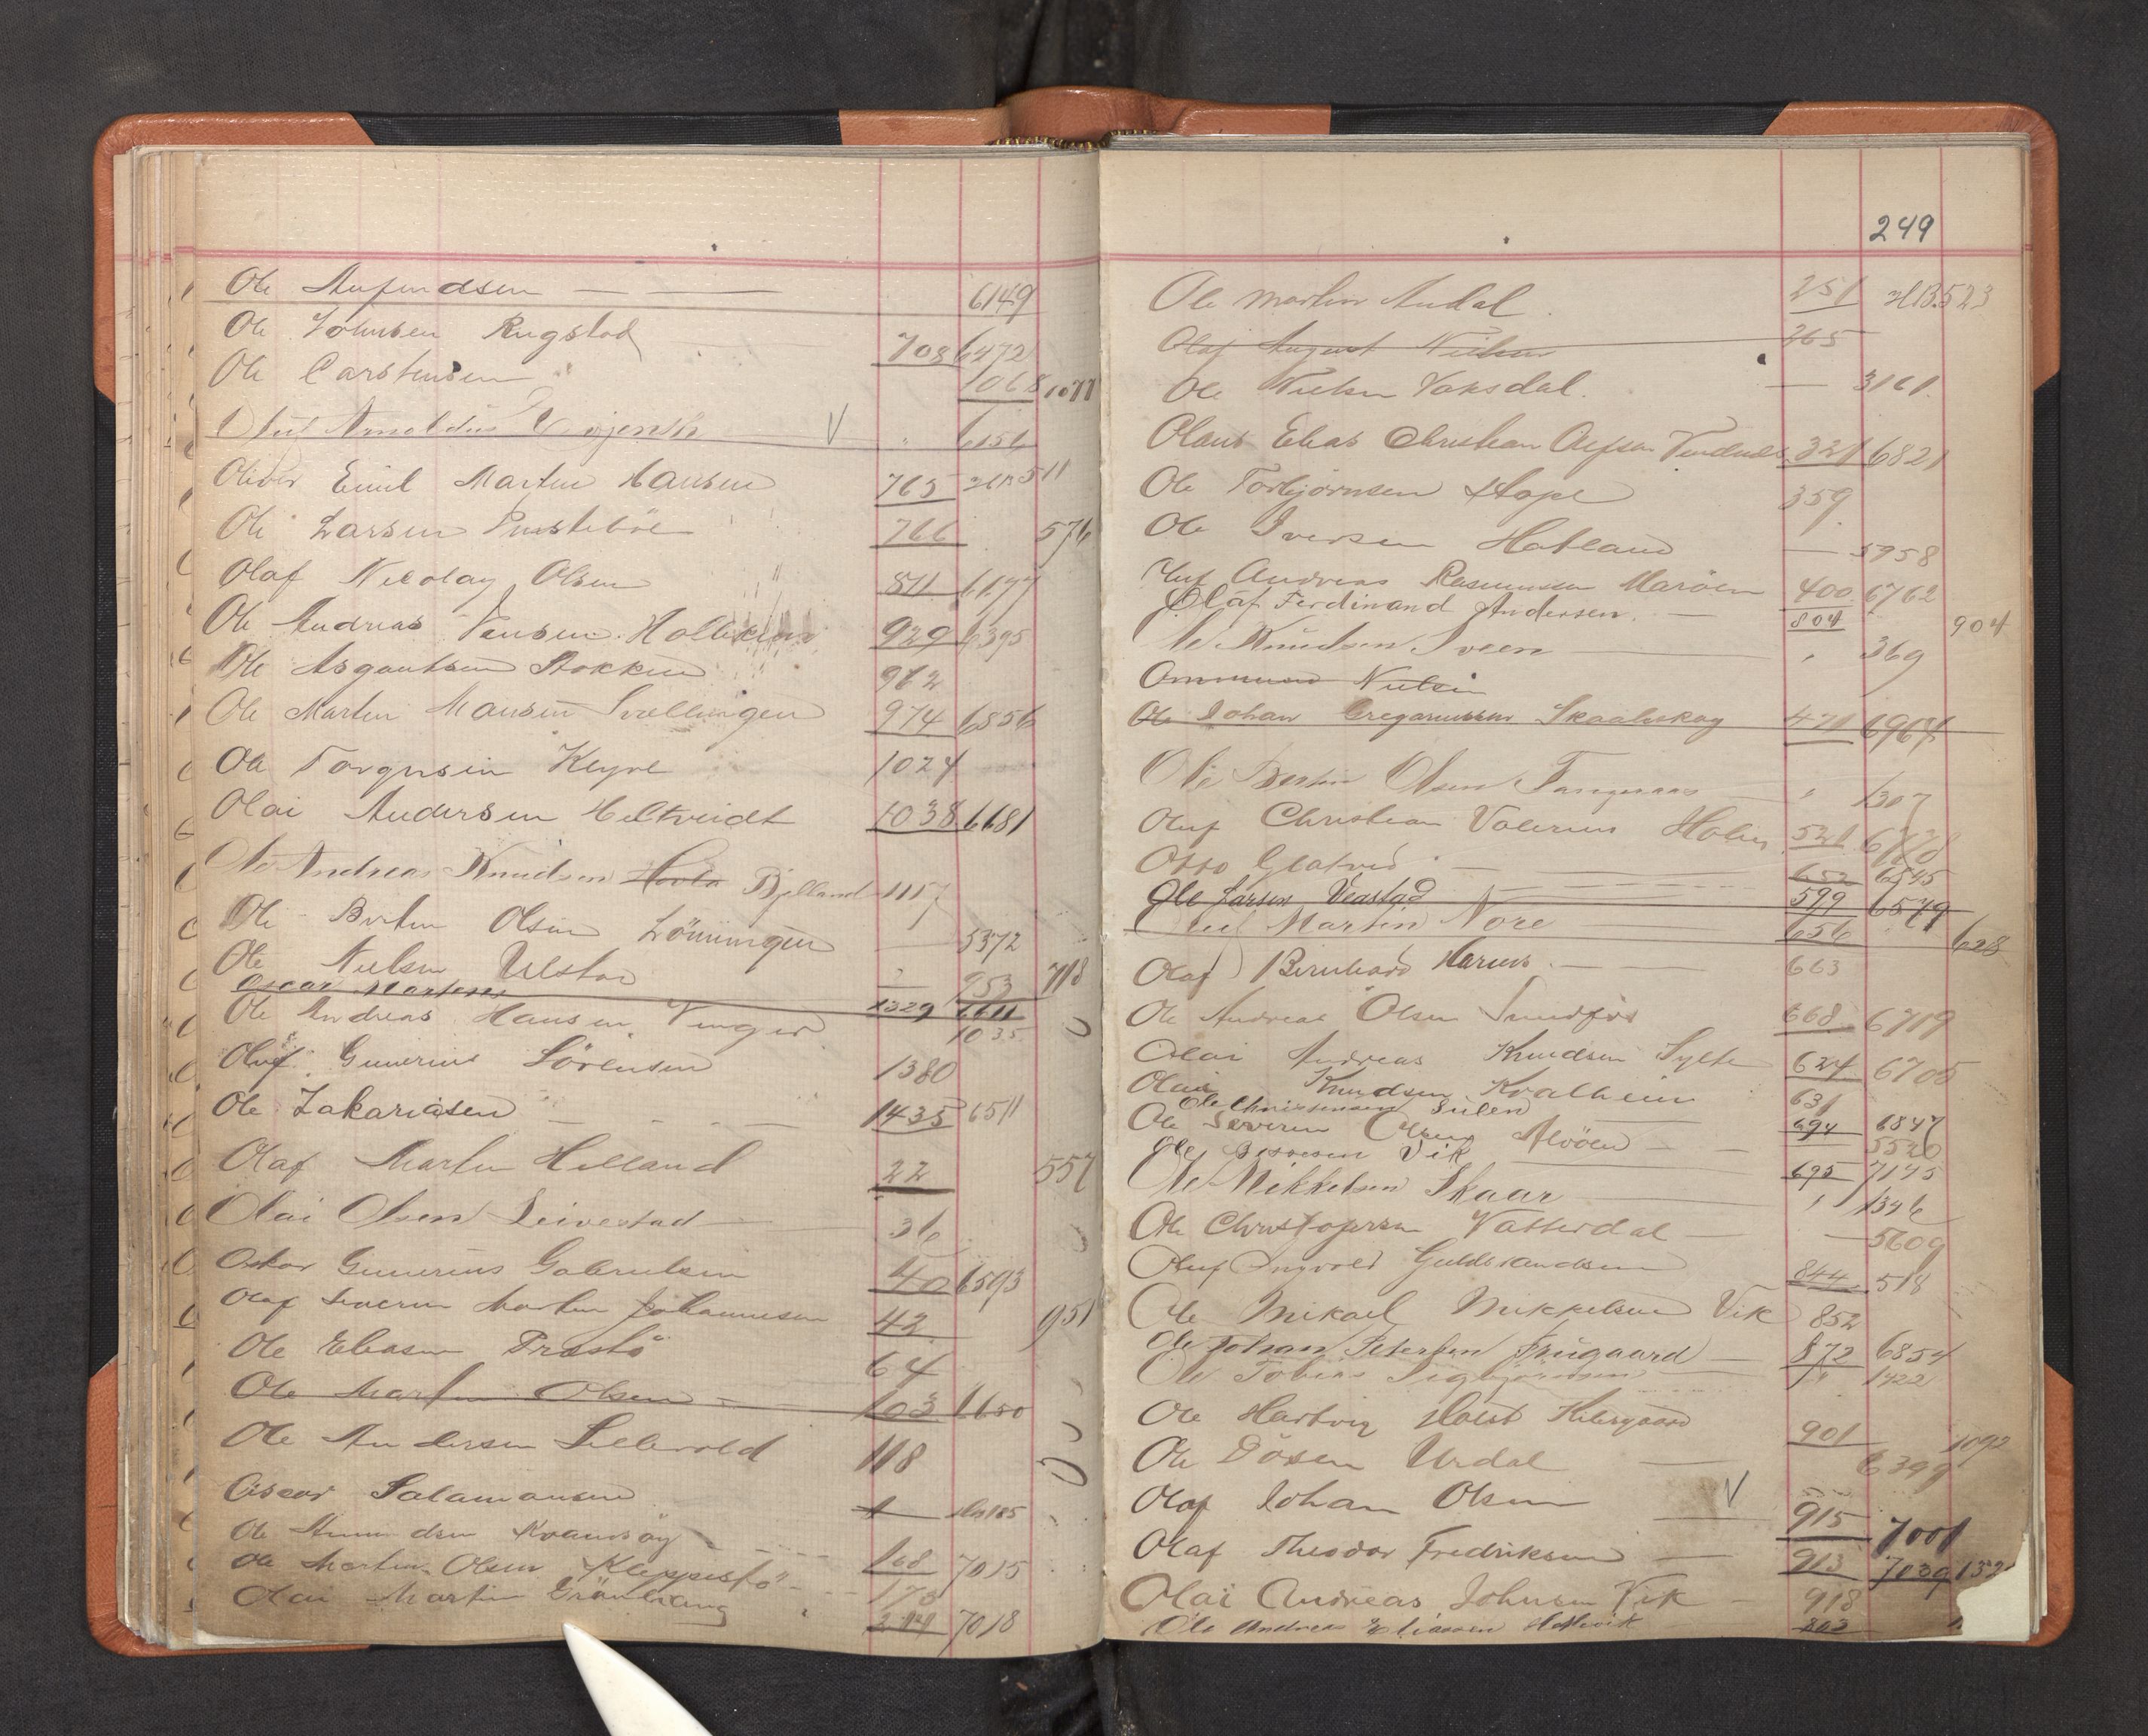 Ole Aufindsen — — 6149
Ole Johnsen Rugstad 708 6472
Ole Carstensen 1068 1077
Oluf Arnoldus V 6156
Oliver Emil Martin Hansen 765 511
Ole Larsen 766 576
Olaf Nicolay Olsen 811 6177
Ole Andreas Jensen 929 6395
Ole Asgautsen Stokken 962
Ole Martin Hansen Svellingen 974 6856
Ole Torgersen Kleyve 1024
Olai Andersen Heltveidt 1038 6681
Ole Andreas Knudsen Hovla Bjelland 1157
Ole Bertin Olsen Lönningen — 5372
Ole Nielsen Ulstad — 953 718
Oscar Martens 1329 6611
Ole Andreas Hansen Vinger 1035
Oluf Gunerius Sörensen 1380
Ole Zakariasen 1435 6511
Olaf Martin Helland 22 557
Olai Olsen Leivestad 36
Oskar Gunerius Gabrielsen 40 6593
Olaf Severin Martin Johannesen 42 951
Ole Eliasen Prestö 64
Ole Martin Olsen 103 6650
Ole Andersen Lillevold 118
Oscar Salamonsen 185
Ole Amundsen
Ole Martin Olsen Kleppestö 168 7015
Olai Martin 178
214 7018
249
Ole Martin Andal 251 523
Olaf August Nielsen 265
Ole Nielsen Vaksdal. — 3161
Olaus Elias Christian 321 6821
Ole Torbjörnsen Hope 359
Ole Iversen Hatland — 5958
Oluf Andreas Rasmussen Maröen 400 6762
Olaf Ferdinand Andersen. — 804 904
Ole Knudsen Sveen — " 369
Ommund Nielsen
Ole Johan Gregoriussen Skaalskog 471 6967
Ole Bertin Olsen Tangeraas " 1307
Oluf Christian Valerius Holm 521 6778
Otto Glatved — 652 6545
Ole Larsen Veastad 599 6579
Oluf Martin Nore 656 628
Olaf Bernhard Harens — 663
Ole Andreas Olsen Sundför 668 6719
Olai Andreas Knudsen Sylte 624 6705
Olai Knudsen Kvalheim 631
Ole Christensen Sulen 694 6847
Ole Severin Olsen Alvöen — 5520
Ole Vik 695 7145
Ole Mikkelsen Skaar " 1346
Ole Christofersen Vatterdal — 5609
Oluf Ingvold Guldbrandsen 844 518
Ole Mikael Mikkelsen Vik 852
Ole Johan Petersen 872 6854
Ole Tobias Sigbjörnsen " 1422
Ole Hartvig Holst 901 1092
Ole Dösen Urdal — 6399
Olaf Johan Olsen V 915 7001
Olaf Theodor Fredriksen — 913 7039 132
Olai Andreas Johnsen Vik — 918
Ole Andreas Eliassen 803